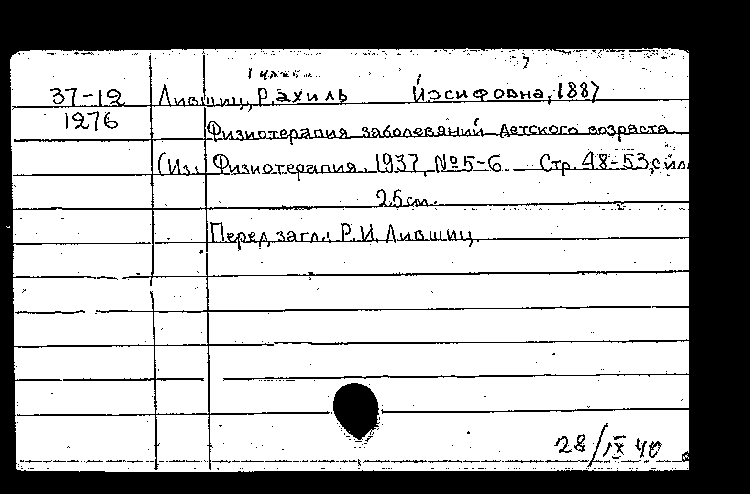 37-12 Лившиц, Рахиль Иосифовна, 1887
1276 Физиотерапия заболеваний детского возраста
(Из. Физиотерапия 1937, №5-6 Стр. 48-53, с ил
25 см.
Перед загл.: Р. И. Лившиц.
28/IX 40